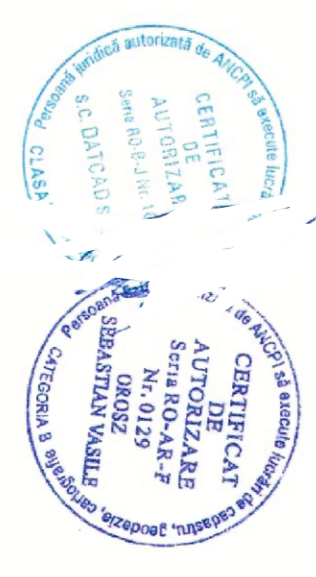 Persoană juridică autorizată de ANCPI să execute lucră
CERTIFICAT
DE
AUTORIZAR
Seria RO-B-J Nr. 16
S.C. DATCAD S
CLASA
Persoană de ANCPI să execute lucrări de cadastru, geodezie, cartografie
CERTIFICAT
DE
AUTORIZARE
Seria RO-AR-F
Nr. 0129
OROSZ
SEBASTIAN VASILE
CATEGORIA B